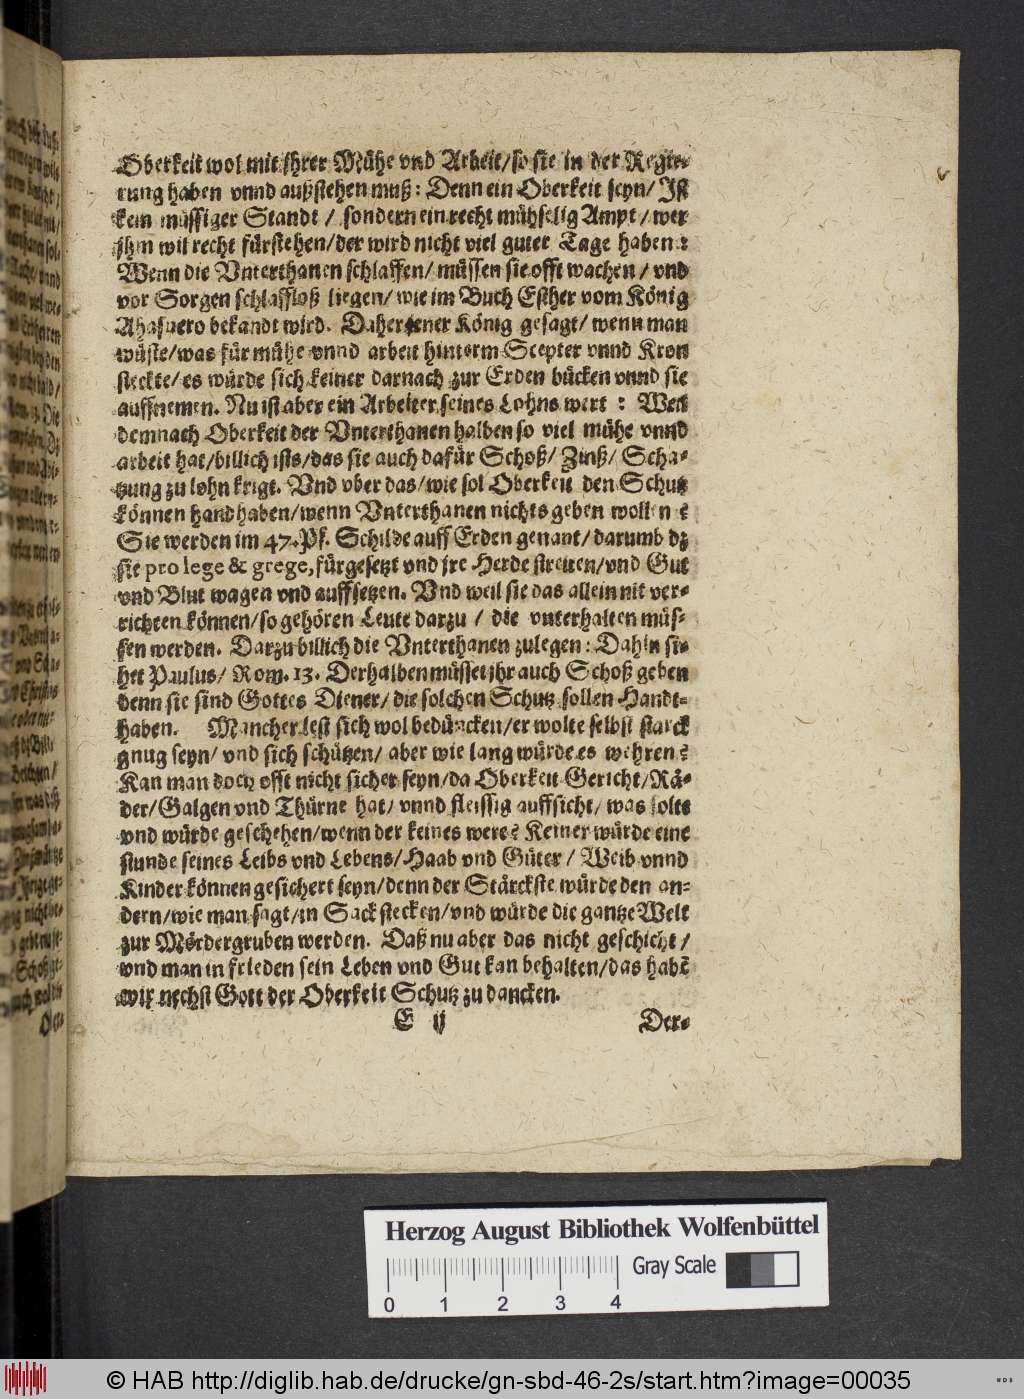 Oberkeit wol mit jhrer Mühe vnd Arbeit/so sie in der Regie-
rung haben vnnd außstehen muß: Denn ein Oberkeit seyn/ Ist
kein müssiger Standt / sondern ein recht mühselig Ampt / wer
jhm wil recht fürstehen/der wird nicht viel guter Tage haben:
Wenn die Vnterthanen schlaffen/ müssen sie offt wachen / vnd
vor Sorgen schlaffloß liegen/ wie im Buch Esther vom König
Ahasuero bekandt wird. Daher jener König gesagt/ wenn man
wüste/was für mühe vnnd arbeit hinterm Scepter vnnd Kron
steckte/es würde sich keiner darnach zur Erden bücken vnnd sie
auffnemen. Nu ist aber ein Arbeiter seines Lohns wert : Weil
demnach Oberkeit der Vnterthanen halben so viel mühe vnnd
arbeit hat/billich ists/das sie auch dafür Schoß/ Zinß/ Scha-
tzung zu lohn krigt. Vnd vber das/wie sol Oberkeit den Schutz
können handhaben/wenn Vnterthanen nichts geben wollen?
Sie werden im 47.Ps. Schilde auff Erden genant/ darumb dz
sie pro lege & grege, fürgesetzt vnd jre Herde streiten/vnd Gut
vnd Blut wagen vnd auffsetzen. Vnd weil sie das allein nit ver-
richten können/so gehören Leute darzu / die vnterhalten müs-
sen werden. Darzu billich die Vnterthanen zulegen: Dahin si-
het Paulus/ Rom. 13. Derhalben müsset jhr auch Schoß geben
denn sie sind Gottes Diener/ die solchen Schutz sollen Handt-
haben. Mancher lest sich wol bedüncken/er wolte selbst starck
gnug seyn/ vnd sich schützen/ aber wie lang würde es wehren?
Kan man doch offt nicht sicher seyn/da Oberkeit Gericht/Rä-
der/Galgen vnd Thürne hat/ vnnd fleissig auffsicht/ was solte
vnd würde geschehen/wenn der keines were? Keiner würde eine
stunde seines Leibs vnd Lebens/Haab vnd Güter / Weib vnnd
Kinder können gesichert seyn/denn der Stärckste würde den an-
dern/wie man sagt/in Sack stecken/vnd würde die gantze Welt
zur Mördergruben werden. Daß nu aber das nicht geschicht /
vnd man in frieden sein Leben vnd Gut kan behalten/das habē
wir nechst Gott der Oberkeit Schutz zu dancken.
E ij Der-
Herzog August Bibliothek Wolfenbüttel
Gray Scale
0 1 2 3 4
© HAB http://diglib.hab.de/drucke/gn-sbd-46-2s/start.htm?image=00035